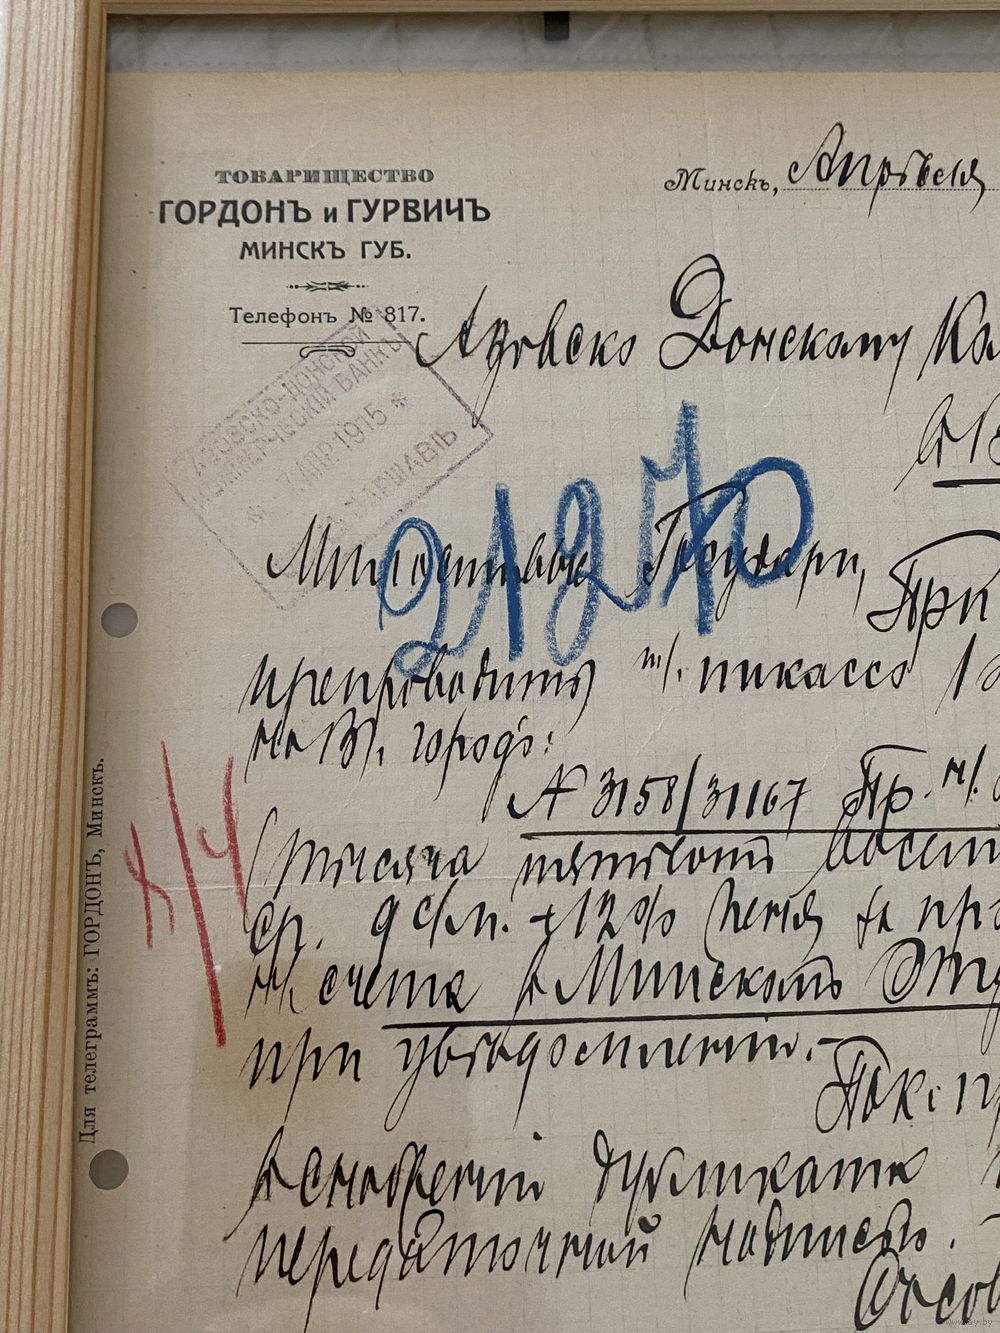 ТОВАРИЩЕСТВО
ГОРДОНЪ и ГУРВИЧЪ
МИНСКЪ ГУБ.
Телефонъ № 817.
Минскъ, Апрѣля
Азовско Донскому Ко
АЗОВСКО-ДОНСКОЙ
КОММЕРЧЕСКІЙ БАНКЪ
* 7 АПР 1915 *
ВАРШАВѢ
21270
Милостивые Государи,
При
препроводить н/. инкассо
на В/. городъ:
№ 3158/31167 Пр. н/.
тысяча пятьсотъ восем
ср. 9 с/м. + 12% пеня за пр
н/ счета в Минскомъ Отд
при увѣдомленіи.-
Пок:
в снабженіи дубликата
передаточной надписью.
Для телеграммъ: ГОРДОНЪ, Минскъ.